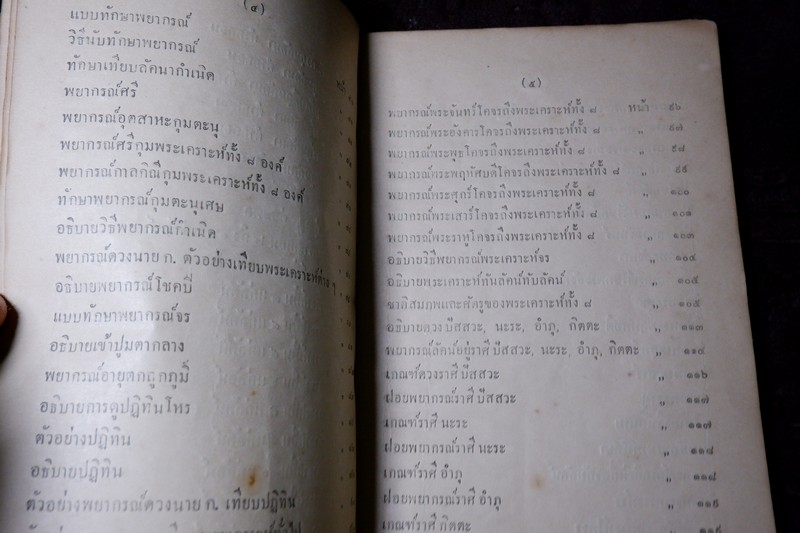 (๔)
แบบทักษาพยากรณ์
วิธีนับทักษาพยากรณ์
ทักษาเทียบลัคนากำเนิด
พยากรณ์ศรี
พยากรณ์อุตสาหะกุมตะนุ
พยากรณ์ศรีกุมพระเคราะห์ทั้ง ๘ องค์
พยากรณ์กาลกิณีกุมพระเคราะห์ทั้ง ๘ องค์
ทักษาพยากรณ์กุมตะนุเศษ
อธิบายวิธีพยากรณ์กำเนิด
พยากรณ์ดวงนาย ก. ตัวอย่างเทียบพระเคราะห์ต่าง ๆ
อธิบายพยากรณ์โชคปี
แบบทักษาพยากรณ์จร
อธิบายเข้าปูมตากลาง
พยากรณ์อายุตกถูกภูมิ์
อธิบายการดูปฏิทินโหร
ตัวอย่างปฏิทิน
อธิบายปฏิทิน
ตัวอย่างพยากรณ์ดวงนาย ก. เทียบปฏิทิน
(๕)
พยากรณ์พระจันทร์โคจรถึงพระเคราะห์ทั้ง ๘ หน้า ๙๖
พยากรณ์พระอังคารโคจรถึงพระเคราะห์ทั้ง ๘ „ ๙๗
พยากรณ์พระพุธโคจรถึงพระเคราะห์ทั้ง ๘ „ ๙๘
พยากรณ์พระพฤหัสบดีโคจรถึงพระเคราะห์ทั้ง ๘ „
พยากรณ์พระศุกร์โคจรถึงพระเคราะห์ทั้ง ๘ „
พยากรณ์พระเสาร์โคจรถึงพระเคราะห์ทั้ง ๘ „ ๑๐๑
พยากรณ์พระราหูโคจรถึงพระเคราะห์ทั้ง ๘ „ ๑๐๓
อธิบายวิธีพยากรณ์พระเคราะห์จร „
อธิบายพระเคราะห์ทันลัคน์ทับลัคน์ „ ๑๐๕
ชาติสมภพและศัตรูของพระเคราะห์ทั้ง ๘ „ ๑๐๕
อธิบายดวง ปัสสวะ, นะระ, อำภุ, กิตตะ „ ๑๑๓
พยากรณ์ลัคน์อยู่ราศี ปัสสวะ, นะระ, อำภุ, กิตตะ „ ๑๑๔
เกณฑ์ดวงราศี ปัสสวะ „ ๑๑๖
ฝอยพยากรณ์ราศี ปัสสวะ „ ๑๑๗
เกณฑ์ราศี นะระ „ ๑๑๗
ฝอยพยากรณ์ราศี นะระ „ ๑๑๘
เกณฑ์ราศี อำภุ „ ๑๑๘
ฝอยพยากรณ์ราศี อำภุ „ ๑๑๙
เกณฑ์ราศี กิตตะ „ ๑๑๙